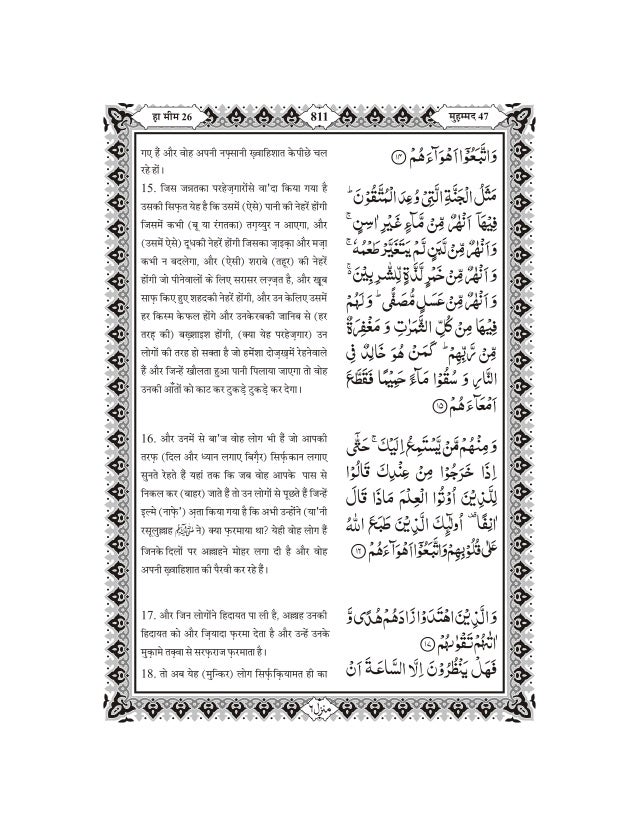 हा मीम 26
811
मुहम्मद 47
गए हैं और वोह अपनी नफ़्सानी ख़्वाहिशात के पीछे चल
रहे हों।
15. जिस जन्नतका परहेज़गारोंसे वा'दा किया गया है
उसकी सिफ़त येह है कि उसमें (ऐसे) पानी की नेहरें होंगी
जिसमें कभी (बू या रंगतका) तग़य्युर न आएगा, और
(उसमें ऐसे) दूधकी नेहरें होंगी जिसका ज़ाइक़ा और मज़ा
कभी न बदलेगा, और (ऐसी) शराबे (तहूर) की नेहरें
होंगी जो पीनेवालों के लिए सरासर लज़्ज़त है, और ख़ूब
साफ़ किए हुए शहदकी नेहरें होंगी, और उन केलिए उसमें
हर क़िस्म केफल होंगे और उनकेरबकी जानिब से (हर
तरह की) बख़्शाइश होंगी, (क्या येह परहेज़गार) उन
लोगों की तरह हो सकता है जो हमेंशा दोज़ख़में रेहनेवाले
हैं और जिन्हें खौलता हुआ पानी पिलाया जाएगा तो वोह
उनकी आँतों को काट कर टुकड़े टुकड़े कर देगा।
16. और उनमें से बा'ज़ वोह लोग भी हैं जो आपकी
तरफ़ (दिल और ध्यान लगाए बिग़ैर) सिर्फ़ कान लगाए
सुनते रेहते हैं यहां तक कि जब वोह आपके पास से
निकल कर (बाहर) जाते हैं तो उन लोगों से पूछते हैं जिन्हें
इल्मे (नाफ़े') अ़ता किया गया है कि अभी उन्होंने (या'नी
रसूलुल्लाह ﷺ ने) क्या फ़रमाया था? येही वोह लोग हैं
जिनके दिलों पर अल्लाहने मोहर लगा दी है और वोह
अपनी ख़्वाहिशात की पैरवी कर रहे हैं।
17. और जिन लोगोंने हिदायत पा ली है, अल्लाह उनकी
हिदायत को और ज़ियादा फ़रमा देता है और उन्हें उनके
मुक़ामे तक़्वा से सरफ़राज़ फ़रमाता है।
18. तो अब येह (मुन्किर) लोग सिर्फ़ क़ियामत ही का
وَاتَّبَعُوْۤا اَهْوَآءَهُمْ ﴿۱۴﴾
مَثَلُ الْجَنَّةِ الَّتِیْ وُعِدَ الْمُتَّقُوْنَ ؕ
فِیْهَاۤ اَنْهٰرٌ مِّنْ مَّآءٍ غَیْرِ اٰسِنٍ ۚ
وَ اَنْهٰرٌ مِّنْ لَّبَنٍ لَّمْ یَتَغَیَّرْ طَعْمُهٗ ۚ
وَ اَنْهٰرٌ مِّنْ خَمْرٍ لَّذَّةٍ لِّلشّٰرِبِیْنَ ۚ۬
وَ اَنْهٰرٌ مِّنْ عَسَلٍ مُّصَفًّی ؕ وَ لَهُمْ
فِیْهَا مِنْ كُلِّ الثَّمَرٰتِ وَ مَغْفِرَةٌ
مِّنْ رَّبِّهِمْ ؕ كَمَنْ هُوَ خَالِدٌ فِی
النَّارِ وَ سُقُوْا مَآءً حَمِیْمًا فَقَطَّعَ
اَمْعَآءَهُمْ ﴿۱۵﴾
وَ مِنْهُمْ مَّنْ یَّسْتَمِعُ اِلَیْكَ ۚ حَتّٰۤی
اِذَا خَرَجُوْا مِنْ عِنْدِكَ قَالُوْا
لِلَّذِیْنَ اُوْتُوا الْعِلْمَ مَاذَا قَالَ
اٰنِفًا ۫ اُولٰٓئِكَ الَّذِیْنَ طَبَعَ اللّٰهُ
عَلٰی قُلُوْبِهِمْ وَاتَّبَعُوْۤا اَهْوَآءَهُمْ ﴿۱۶﴾
وَ الَّذِیْنَ اهْتَدَوْا زَادَهُمْ هُدًی وَّ
اٰتٰىهُمْ تَقْوٰىهُمْ ﴿۱۷﴾
فَهَلْ یَنْظُرُوْنَ اِلَّا السَّاعَةَ اَنْ
منزل ۶